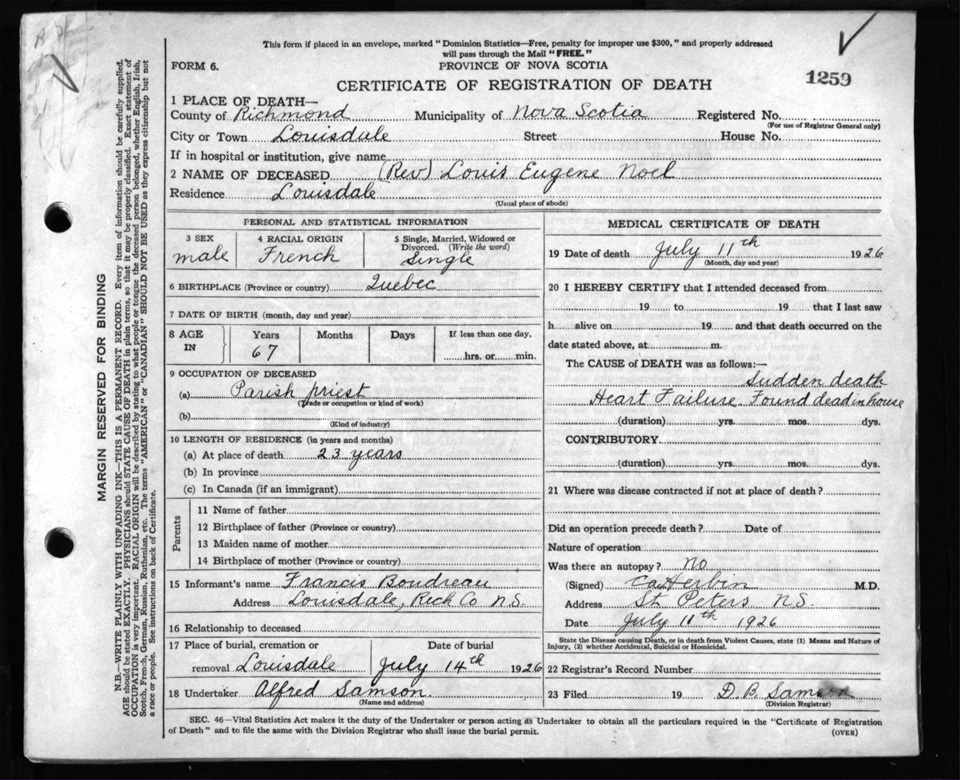 This form if placed in an envelope, marked "Dominion Statistics—Free, penalty for improper use $300," and properly addressed
will pass through the Mail "FREE."
FORM 6.
PROVINCE OF NOVA SCOTIA
CERTIFICATE OF REGISTRATION OF DEATH
1259
1 PLACE OF DEATH—
County of Richmond Municipality of Nova Scotia Registered No.
(For use of Registrar General only)
City or Town Louisdale Street House No.
If in hospital or institution, give name
2 NAME OF DECEASED (Rev) Louis Eugene Noel
Residence Louisdale
(Usual place of abode)
PERSONAL AND STATISTICAL INFORMATION
3 SEX
male
4 RACIAL ORIGIN
French
5 Single, Married, Widowed or
Divorced. (Write the word)
Single
6 BIRTHPLACE (Province or country) Quebec
7 DATE OF BIRTH (month, day and year)
8 AGE
IN
Years
67
Months
Days
If less than one day,
hrs. or min.
9 OCCUPATION OF DECEASED
(a) Parish priest
(Trade or occupation or kind of work)
(b)
(Kind of industry)
10 LENGTH OF RESIDENCE (in years and months)
(a) At place of death 23 years
(b) In province
(c) In Canada (if an immigrant)
Parents
11 Name of father
12 Birthplace of father (Province or country)
13 Maiden name of mother
14 Birthplace of mother (Province or country)
15 Informant's name Francis Boudreau
Address Louisdale, Rich Co N.S.
16 Relationship to deceased
17 Place of burial, cremation or
removal Louisdale
Date of burial
July 14th 1926
18 Undertaker Alfred Samson
(Name and address)
MEDICAL CERTIFICATE OF DEATH
19 Date of death July 11th 1926
(Month, day and year)
20 I HEREBY CERTIFY that I attended deceased from
19 to 19 that I last saw
h alive on 19 and that death occurred on the
date stated above, at m.
The CAUSE OF DEATH was as follows:—
Sudden death
Heart Failure. Found dead in house
(duration) yrs. mos. dys.
CONTRIBUTORY
(duration) yrs. mos. dys.
21 Where was disease contracted if not at place of death?
Did an operation precede death? Date of
Nature of operation
Was there an autopsy? No
(Signed) Herbin M.D.
Address St. Peters N.S.
Date July 11th 1926
State the Disease causing Death, or in death from Violent Causes, state (1) Means and Nature of
Injury, (2) whether Accidental, Suicidal or Homicidal.
22 Registrar's Record Number
23 Filed 19 D. B. Samson
(Division Registrar)
SEC. 46—Vital Statistics Act makes it the duty of the Undertaker or person acting as Undertaker to obtain all the particulars required in the "Certificate of Registration
of Death" and to file the same with the Division Registrar who shall issue the burial permit.
(OVER)
MARGIN RESERVED FOR BINDING
N.B.—WRITE PLAINLY, WITH UNFADING INK—THIS IS A PERMANENT RECORD. Every item of information should be carefully supplied.
AGE should be stated EXACTLY. PHYSICIANS should STATE CAUSE OF DEATH in plain terms, so that it may be properly classified. Exact statement of
OCCUPATION is very important. RACIAL ORIGIN will be described by stating to what people or tongue the deceased person belonged, whether English, Irish,
Scotch, French, German, Russian, Ruthenian, etc. The terms "AMERICAN" or "CANADIAN" SHOULD NOT BE USED as they express citizenship but not
a race or people. See instructions on back of Certificate.